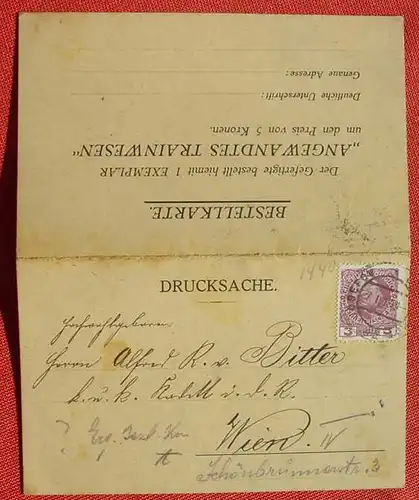 BESTELLKARTE.
Der Gefertigte bestellt hiemit 1 EXEMPLAR
„ANGEWANDTES TRAINWESEN“
um den Preis von 5 Kronen.
Deutliche Unterschrift:
Genaue Adresse:
DRUCKSACHE.
1440
3 3
Hochwohlgeboren
Herrn Alfred R. v. Bitter
k. u. k. Kadett i. d. R.
Wien. IV
Schönbrunnerstr. 3